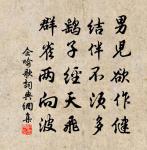 男兒欲作健
結伴不須多
鷂子經天飛
群雀兩向波
企喻歌詞典網集